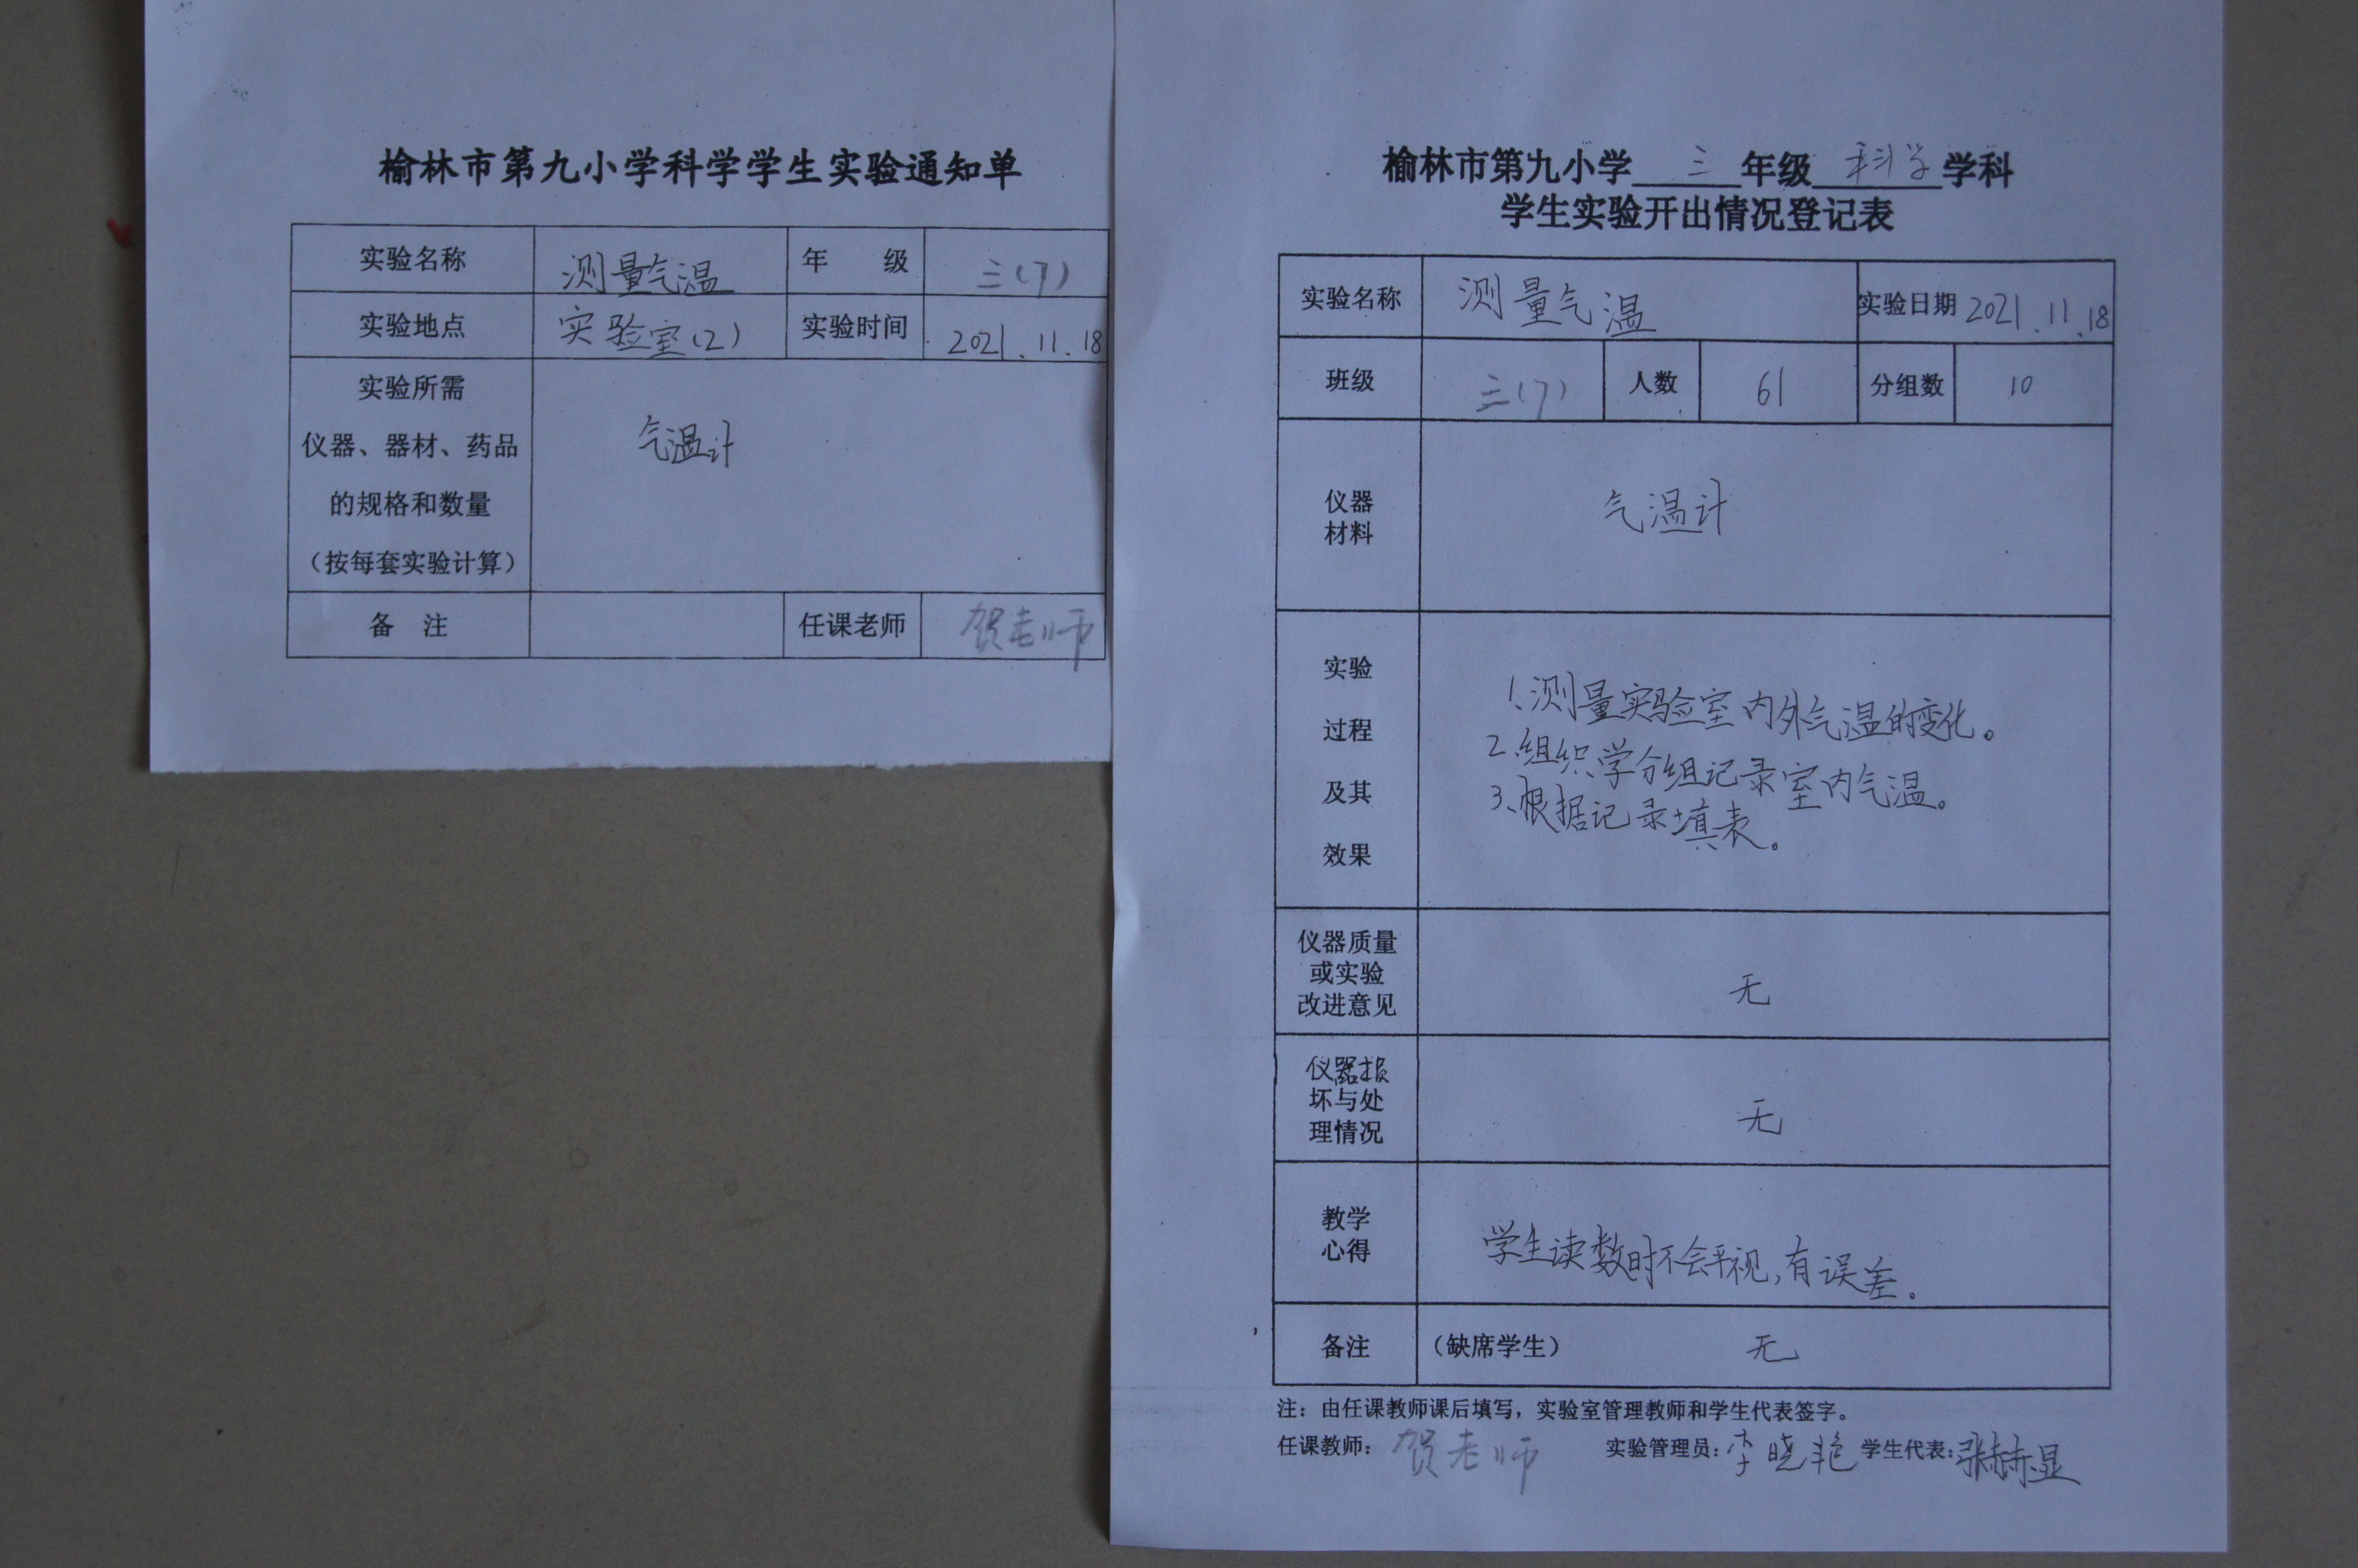 榆林市第九小学科学学生实验通知单
实验名称 测量气温 年 级 三(7)
实验地点 实验室(2) 实验时间 2021.11.18
实验所需
仪器、器材、药品
的规格和数量
(按每套实验计算)
气温计
备 注 任课老师 贺老师
榆林市第九小学 三 年级 科学 学科
学生实验开出情况登记表
实验名称 测量气温 实验日期 2021.11.18
班级 三(7) 人数 61 分组数 10
仪器
材料
气温计
实验
过程
及其
效果
1、测量实验室内外气温的变化。
2、组织学分组记录室内气温。
3、根据记录填表。
仪器质量
或实验
改进意见
无
仪器损
坏与处
理情况
无
教学
心得
学生读数时不会平视,有误差。
备注 (缺席学生) 无
注:由任课教师课后填写,实验室管理教师和学生代表签字。
任课教师: 贺老师 实验管理员: 李晓艳 学生代表: 张赫显